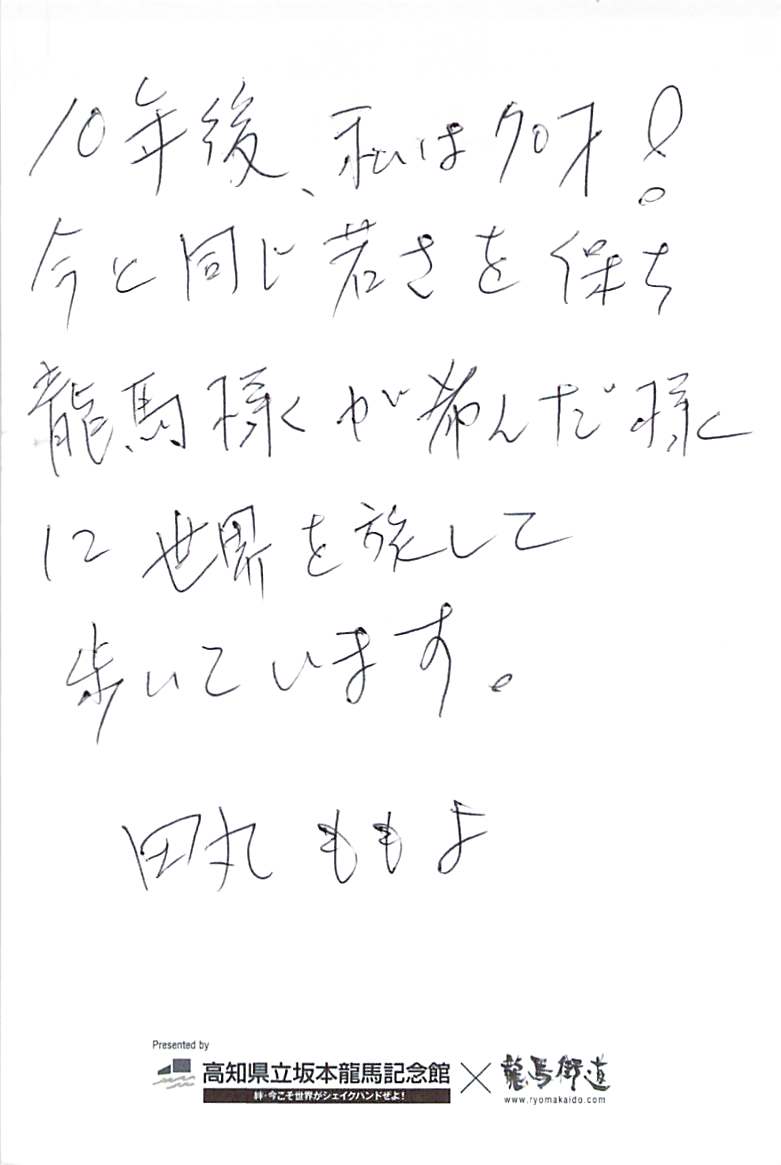 10年後、私は70才!
今と同じ若さを保ち
龍馬様が希んだ様
に世界を旅して
歩いています。
田丸ももよ
Presented by
高知県立坂本龍馬記念館×龍馬街道
絆・今こそ世界がシェイクハンドぜよ!
www.ryomakaido.com